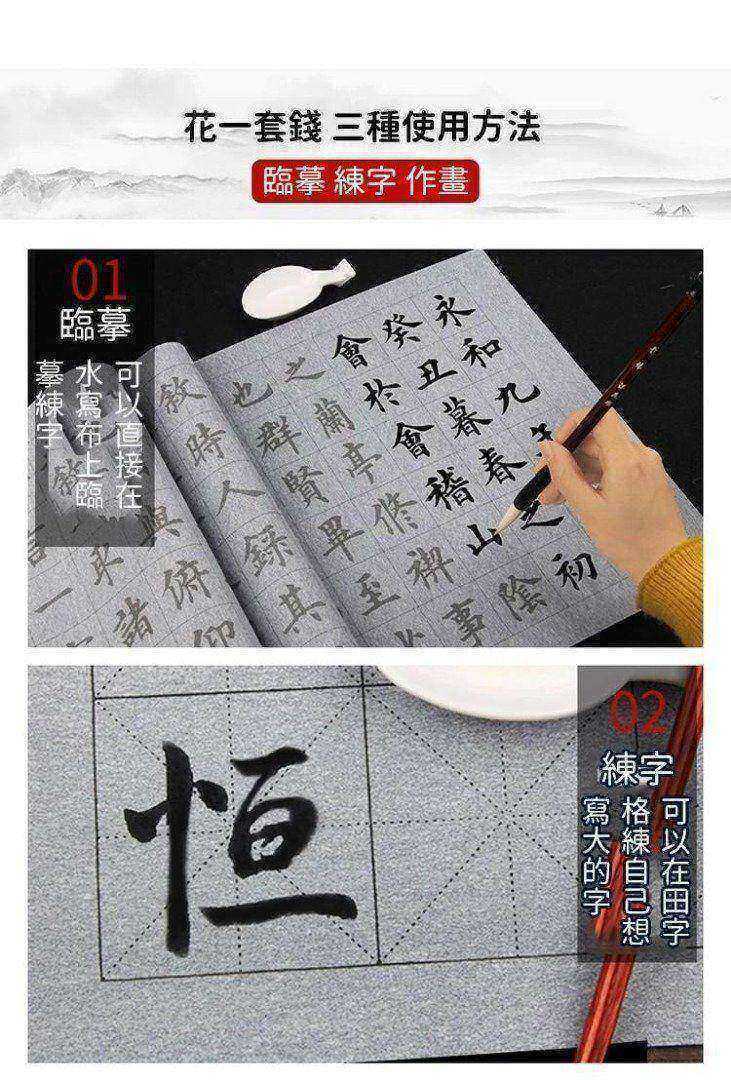 花一套錢 三種使用方法
臨摹 練字 作畫
01
臨摹
可以直接在
水寫布上臨
摹練字
永和九年
癸丑暮春之初
會於會稽山陰
之蘭亭修禊事
也群賢畢至少
敘時人錄其
與俯仰
取諸
一
02
練字
可以在田字
格練自己想
寫大的字
恒